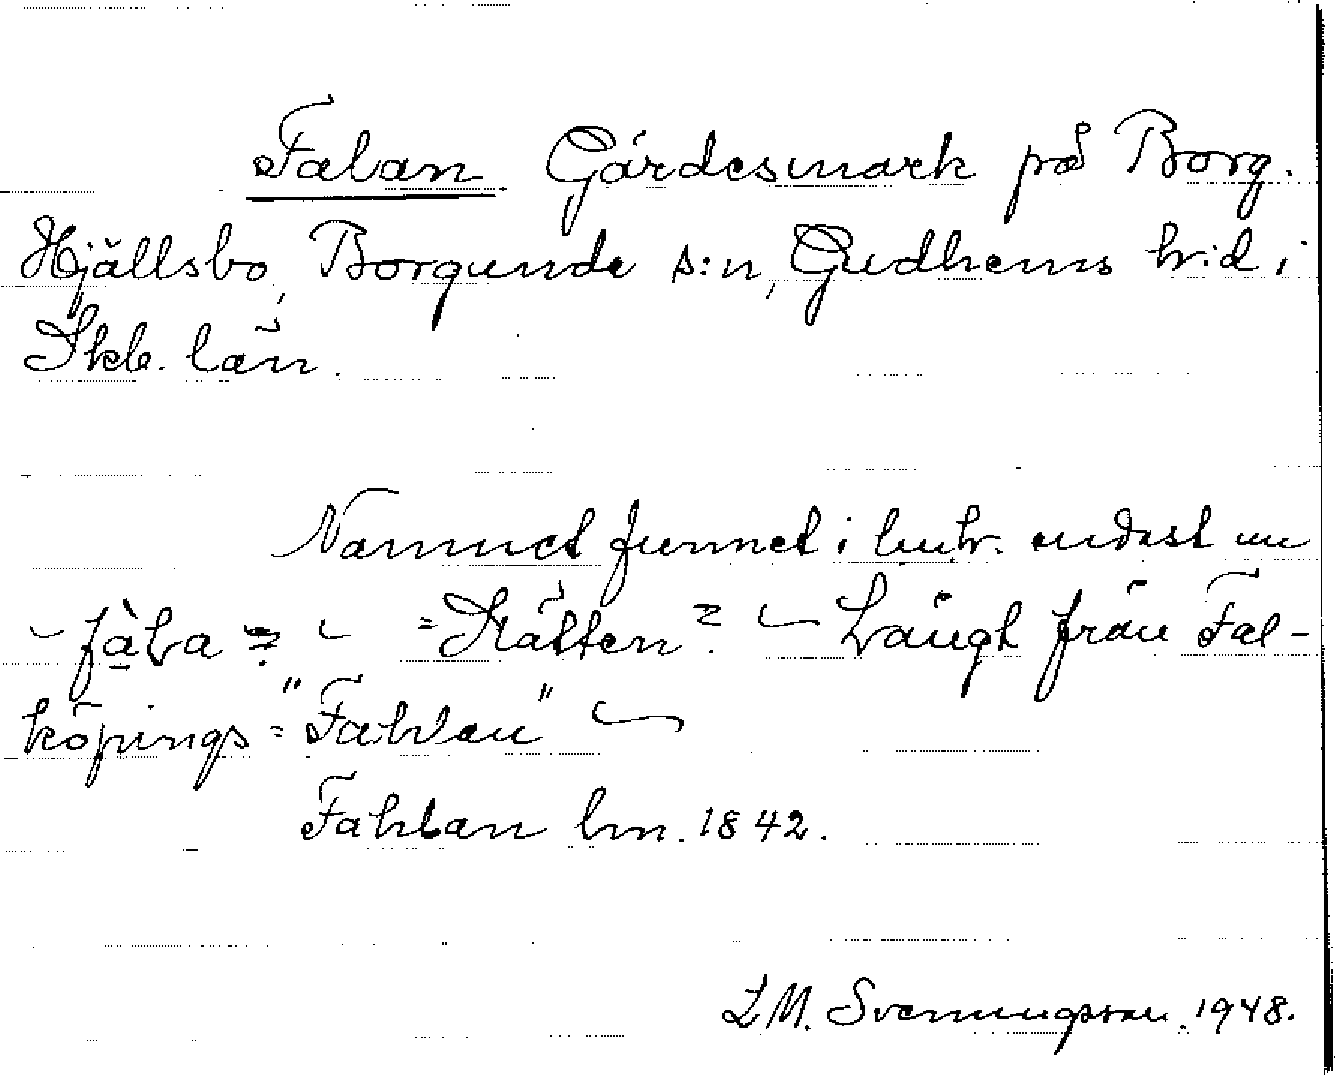 Falan Gärdesmark på Borg.
Hjällsbo, Borgunde s:n, Gudhems h:d i
Skb. län.
Namnet funnet i lmtr. endast en
fàla = "Slätten" Långt från Fal-
köpings "Fahlan"
Fahlan lm. 1842.
L M. Svenungsson. 1948.